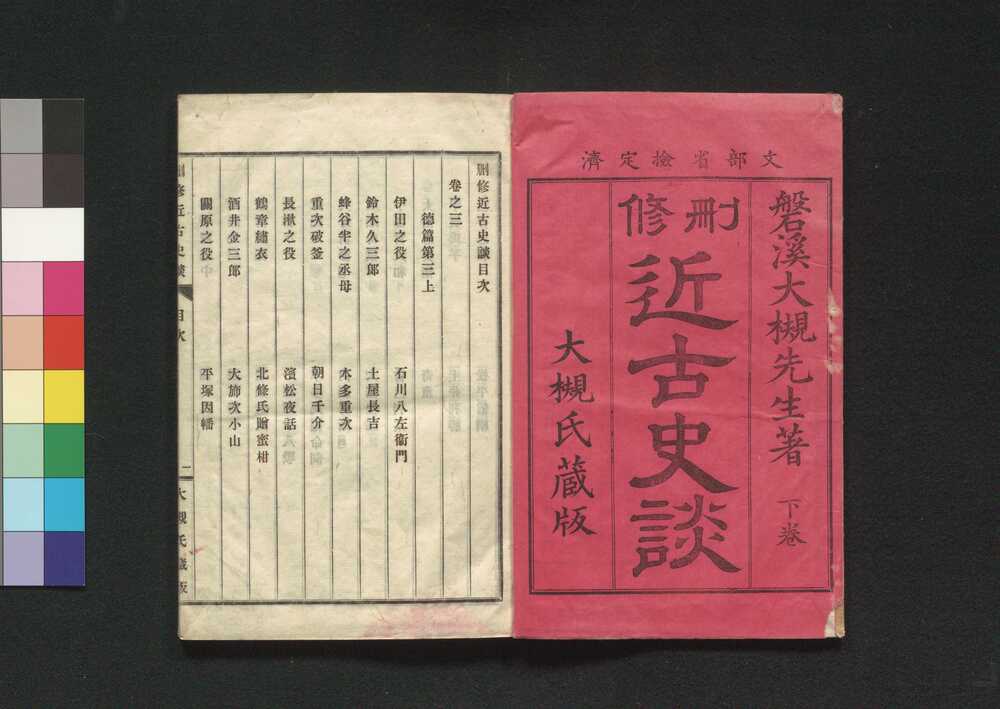 文部省檢定濟
磐溪大槻先生著 下卷
刪修
近古史談
大槻氏蔵版
刪修近古史談目次
卷之三
德篇第三上
伊田之役 石川八左衞門
鈴木久三郎 土屋長吉
蜂谷半之丞母 本多重次
重次破釜 朝日千介
長湫之役 濱松夜話
鶴章繡衣 北條氏贈蜜柑
酒井金三郎 大斾次小山
關原之役 平塚因幡
刪修近古史談 目次 一 大槻氏藏版